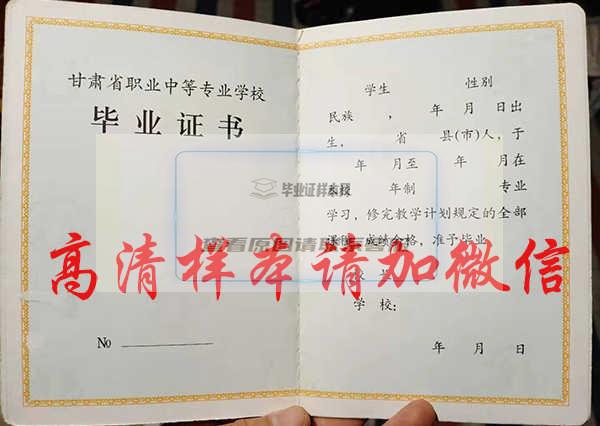 甘肃省职业中等专业学校
毕业证书
No
学生 性别
民族 , 年 月 日出
生, 省 县(市)人,于
年 月至 年 月在
年制 专业
学习,修完教学计划规定的全部
课程,成绩合格,准予毕业
学校:
年 月 日
毕业证样本网
高清样本请加微信